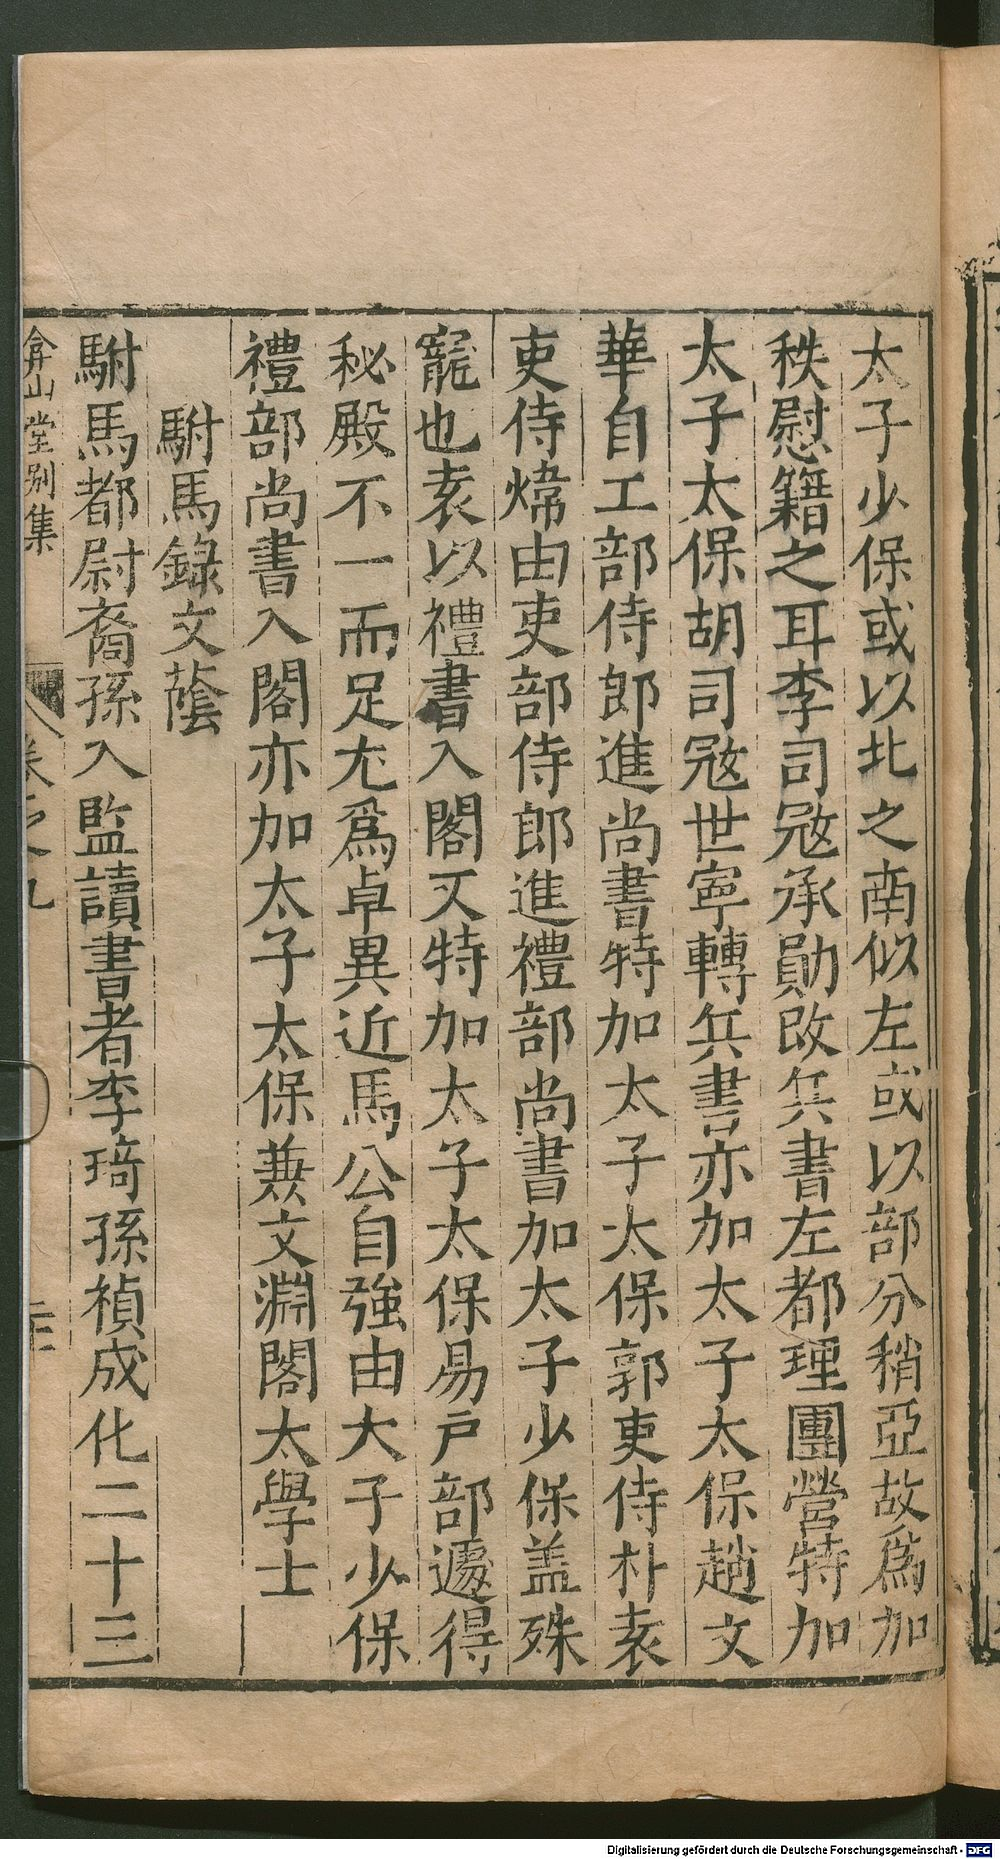 太子少保或以北之南似左或以部分稍亞故爲加
秩慰籍之耳李司𡨥承勛改兵書左都理團營特加
太子太保胡司𡨥世寧轉兵書亦加太子太保趙文
華自工部侍郎進尚書特加太子太保郭吏侍朴袁
吏侍煒由吏部侍郎進禮部尚書加太子少保盖殊
寵也袁以禮書入閣又特加太子太保昜戸部遽得
秘殿不一而足尤爲卓異近馬公自強由大子少保
禮部尚書入閣亦加太子太保兼文淵閣太學士
駙馬錄文䕃
駙馬都尉裔孫入監讀書者李琦孫禎成化二十三
弇山堂別集 卷之九